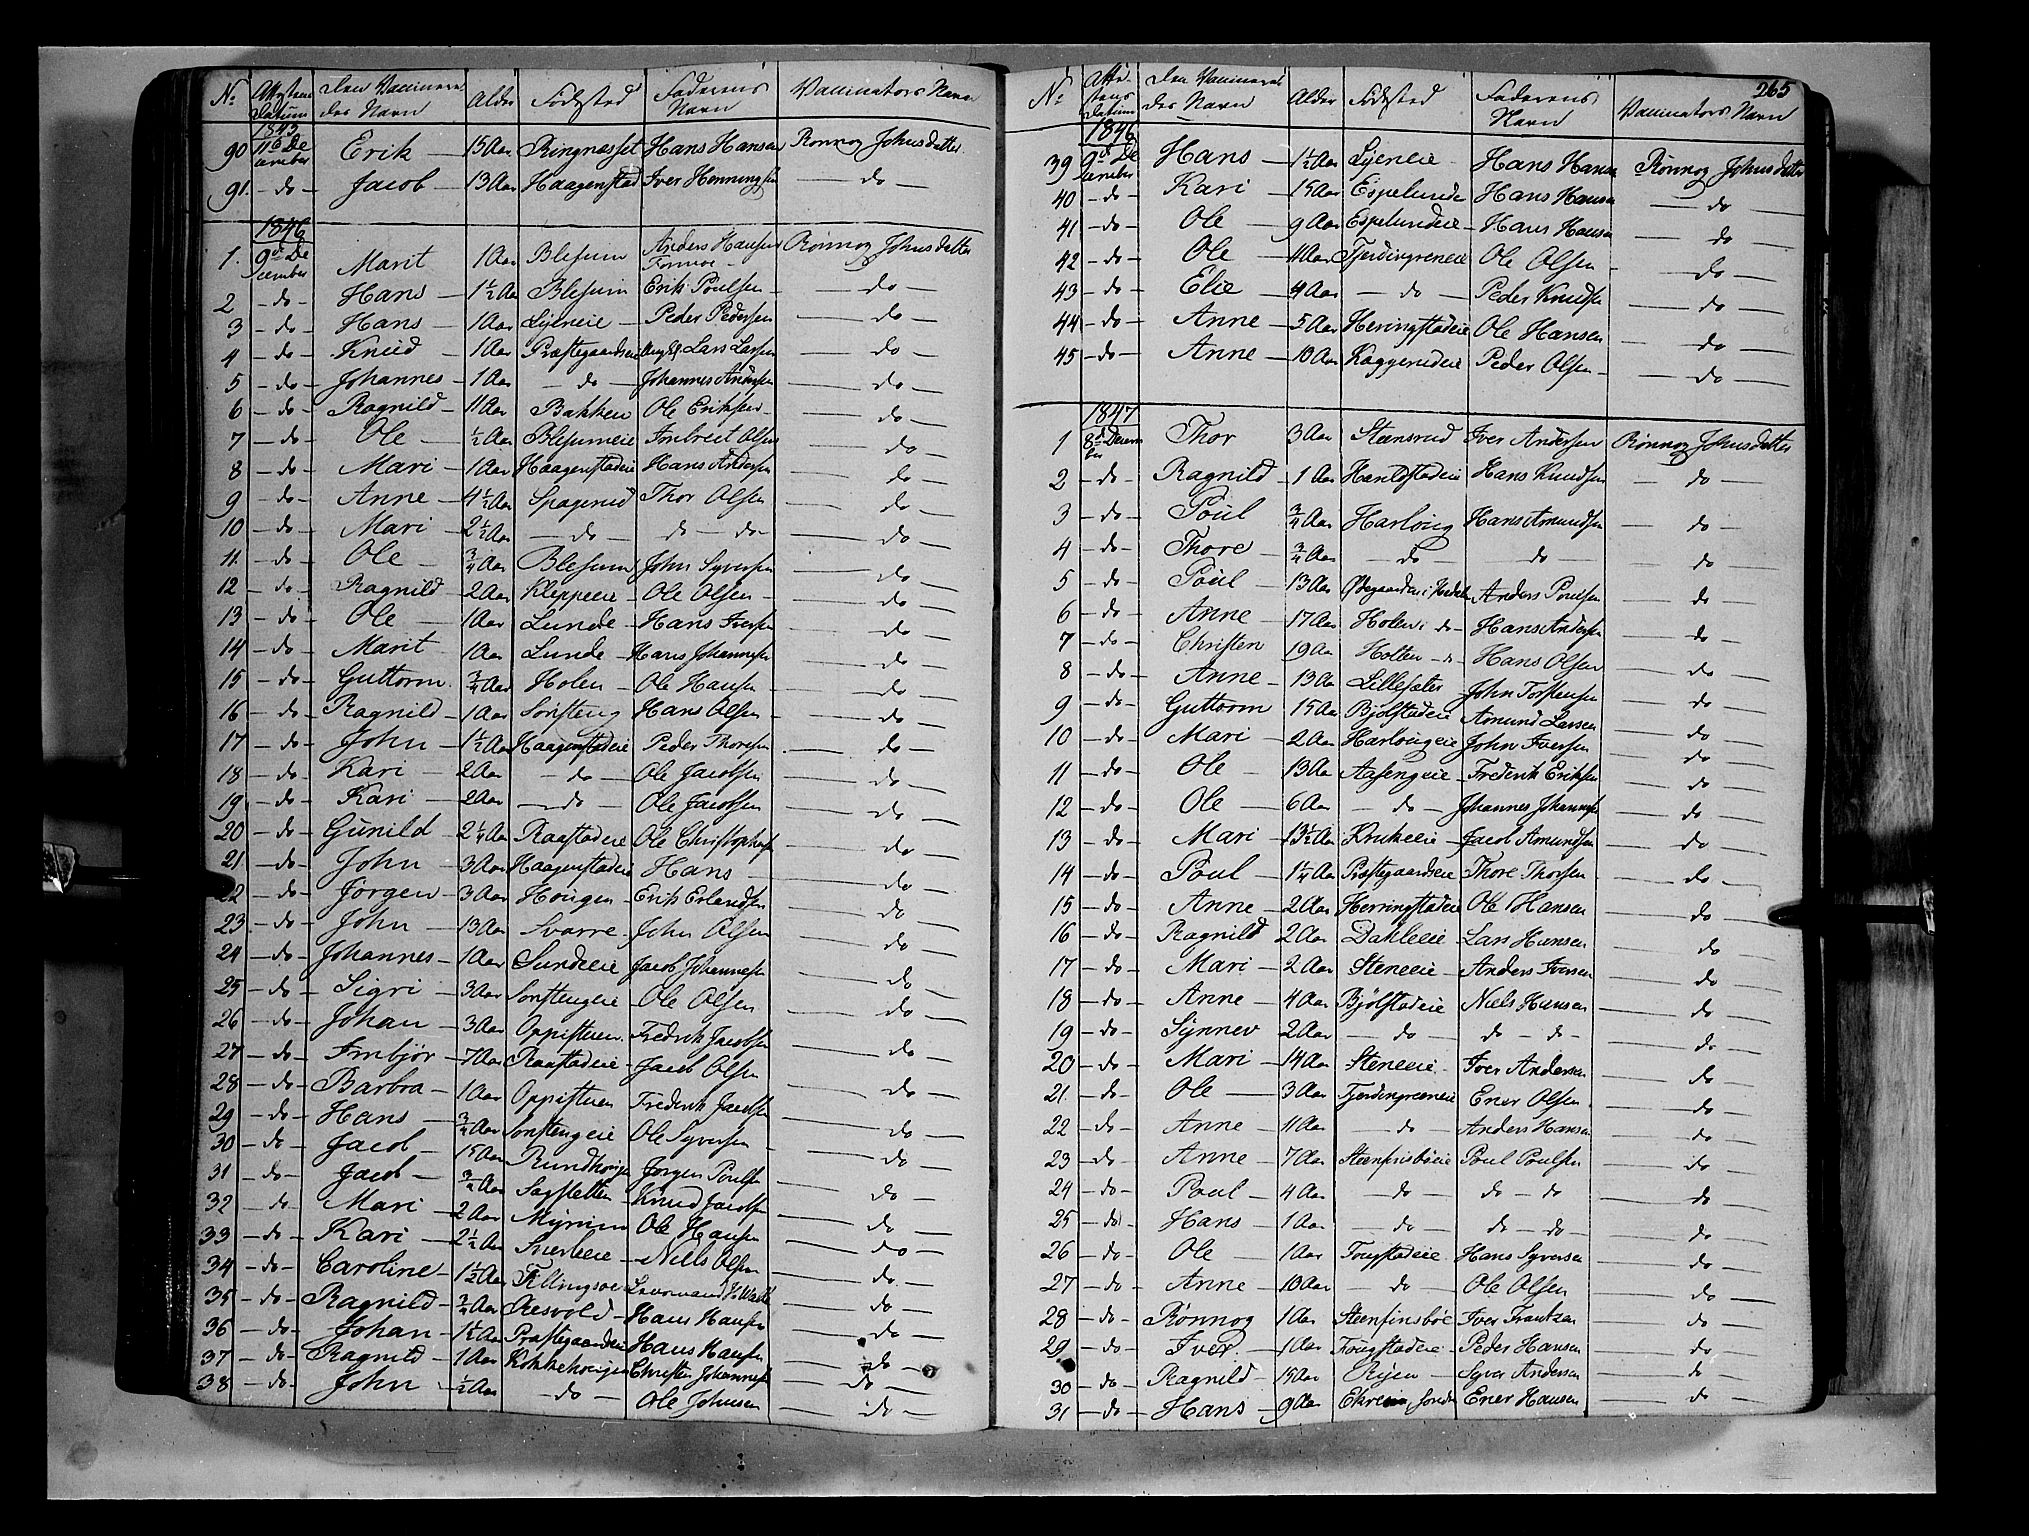 No Attestens Datum Den Vaccineredes Navn Alder Fødested Faderens Navn Vaccinators Navn
1845
90 11te December Erik 15 Aar Ringnæsset Hans Hansen Rønnog Johnsdatter
91. -do- Jacob 13 Aar Haagenstad Iver Henningsen -do-
1846
1. 9de December Marit 1 Aar Blesum Anders Hansen Rønnog Johnsdatter
2 -do- Hans 1½ Aar Blesum Erik Poulsen -do-
3 -do- Hans 1 Aar Lyeneie Peder Pedersen -do-
4 -do- Knud 1 Aar Præstegaardseie Lars Larsen -do-
5 -do- Johannes 1 Aar -do- Johannes Andersen -do-
6 -do- Ragnild 11 Aar Bakken Ole Eriksen -do-
7 -do- Ole ½ Aar Blesumeie Imbreit Olsen -do-
8 -do- Mari 1 Aar Haagenstadeie Hans Andersen -do-
9 -do- Anne 4½ Aar Spagerud Thor Olsen -do-
10 -do- Mari 2½ Aar -do- do -do- -do-
11. -do- Ole ¾ Aar Blesum John Syversen -do-
12 -do- Ragnild 2 Aar Kleppeeie Ole Olsen -do-
13 -do- Ole 1 Aar Lunde Hans Iversen -do-
14 -do- Marit 1 Aar Lunde Hans Johannesen -do-
15 -do- Guttorm ¾ Aar Holen Ole Hansen -do-
16 -do- Ragnild 1 Aar Sørsteng Hans Olsen -do-
17 -do- John 1½ Aar Haagenstadeie Peder Thoresen -do-
18 -do- Kari 2 Aar -do- Ole Jacobsen -do-
19 -do- Kari 2 Aar -do- Ole Jacobsen -do-
20 -do- Gunild 2¼ Aar Raastadeie Ole Christophers -do-
21 -do- John 3 Aar Haagenstadeie Hans -do-
22 -do- Jørgen 3 Aar Hougen Erik Erlandsen -do-
23 -do- John 13 Aar Svarre John Olsen -do-
24 -do- Johannes 1 Aar Sundeeie Jacob Johannesen -do-
25 -do- Sigri 3 Aar Sørstengeie Ole Olsen -do-
26 -do- Johan 3 Aar Oppistuen Fredrik Jacobsen -do-
27 -do- Imbjør 7 Aar Raastadeie Jacob Olsen -do-
28 -do- Barbra 1 Aar Oppistuen Frederik Jacobsen -do-
29 -do- Hans ¾ Aar Sørstengeie Ole Syversen -do-
30 -do- Jacob 15 Aar Rundhougen Jørgen Poulsen -do-
31 -do- Jacob ¾ Aar Sagsletten Knud Jacobsen -do-
32 -do- Mari 2 Aar Myrum Ole Hansen -do-
33 -do- Kari 2½ Aar Snerleeie Niels Olsen -do-
34 -do- Caroline 1½ Aar Fillingsvei -do-
35 -do- Ragnild ¾ Aar Aresvold Hans Hansen -do-
36 -do- Johan 1½ Aar Præstegaardseie Hans Hansen -do-
37 -do- Ragnild 1 Aar Kokkehougen Christen Johannesen -do-
38 -do- John ½ Aar -do- Ole Johnsen -do-
265
No Attestens Datum Den Vaccineredes Navn Alder Fødested Faderens Navn Vaccinators Navn
1846
39 9de December Hans 1½ Aar Lyeneie Hans Hansen Rønnog Johnsdatter
40 -do- Kari 15 Aar Espelunde Hans Hansen -do-
41 -do- Ole 9 Aar Espelundeie Hans Hansen -do-
42 -do- Ole 11 Aar Tjerdingreneie Ole Olsen -do-
43 -do- Elie 4 Aar -do- Peder Knudsen -do-
44 -do- Anne 5 Aar Heringstadeie Ole Hansen -do-
45 -do- Anne 10 Aar Kaggerudeie Peder Olsen -do-
1847
1 8de December Thor 3 Aar Steensrud Iver Andersen Rønnog Johnsdatter
2 -do- Ragnild 1 Aar Hanldstadeie Hans Knudsen -do-
3 -do- Poul ¾ Aar Harloug Hans Amundsen -do-
4 -do- Thore ¾ Aar do do do
5 -do- Poul 13 Aar Ødegaarden i Anders Poulsen do
6 -do- Anne 17 Aar Holen i do Hans Andersen -do-
7 -do- Christen 19 Aar Holten do Hans Olsen -do-
8 -do- Anne 13 Aar Lillesæter John Torstensen -do-
9 -do- Guttorm 15 Aar Bjølstadeie Amund Larsen -do-
10 -do- Mari 2 Aar Harlougeie John Iversen -do-
11 -do- Ole 13 Aar Aasengeie Frederik Eriksen -do-
12 -do- Ole 6 Aar -do- Johannes Johannesen -do-
13 -do- Mari 13½ Aar Krukeeie Jacob Amundsen -do-
14 -do- Poul 1¼ Aar Præstegaardseie Thore Thorsen -do-
15 -do- Anne 2 Aar Herringstadeie Ole Hansen -do-
16 -do- Ragnild 2 Aar Dahleeie Lars Hansen -do-
17 -do- Mari 2 Aar Steneeie Anders Iversen -do-
18 -do- Anne 4 Aar Bjølstadeie Niels Hansen -do-
19 -do- Synnev 2 Aar -do- do -do- -do-
20 -do- Mari 14 Aar Steneeie Iver Andersen -do-
21. -do- Ole 3 Aar Tjerdingreneie Ener Olsen -do-
22 -do- Anne 11 Aar -do- Anders Hansen -do-
23 -do- Anne 7 Aar Steenfinsbøeie Poul Poulsen -do-
24 -do- Poul 4 Aar do do - do -do-
25 -do- Hans 1 Aar do do - do -do-
26 -do- Ole 1 Aar Tougstadeie Hans Syversen -do-
27 -do- Anne 10 Aar -do- Ole Olsen -do-
28 -do- Rønnog 1 Aar Steenfinsbøe Iver Frantzen -do-
29 -do- Iver 1 Aar Tougstadeie Peder Hansen -do-
30 -do- Ragnild 15 Aar Rijen Syver Andersen -do-
31 -do- Hans 9 Aar Ekre Ener Hansen -do-